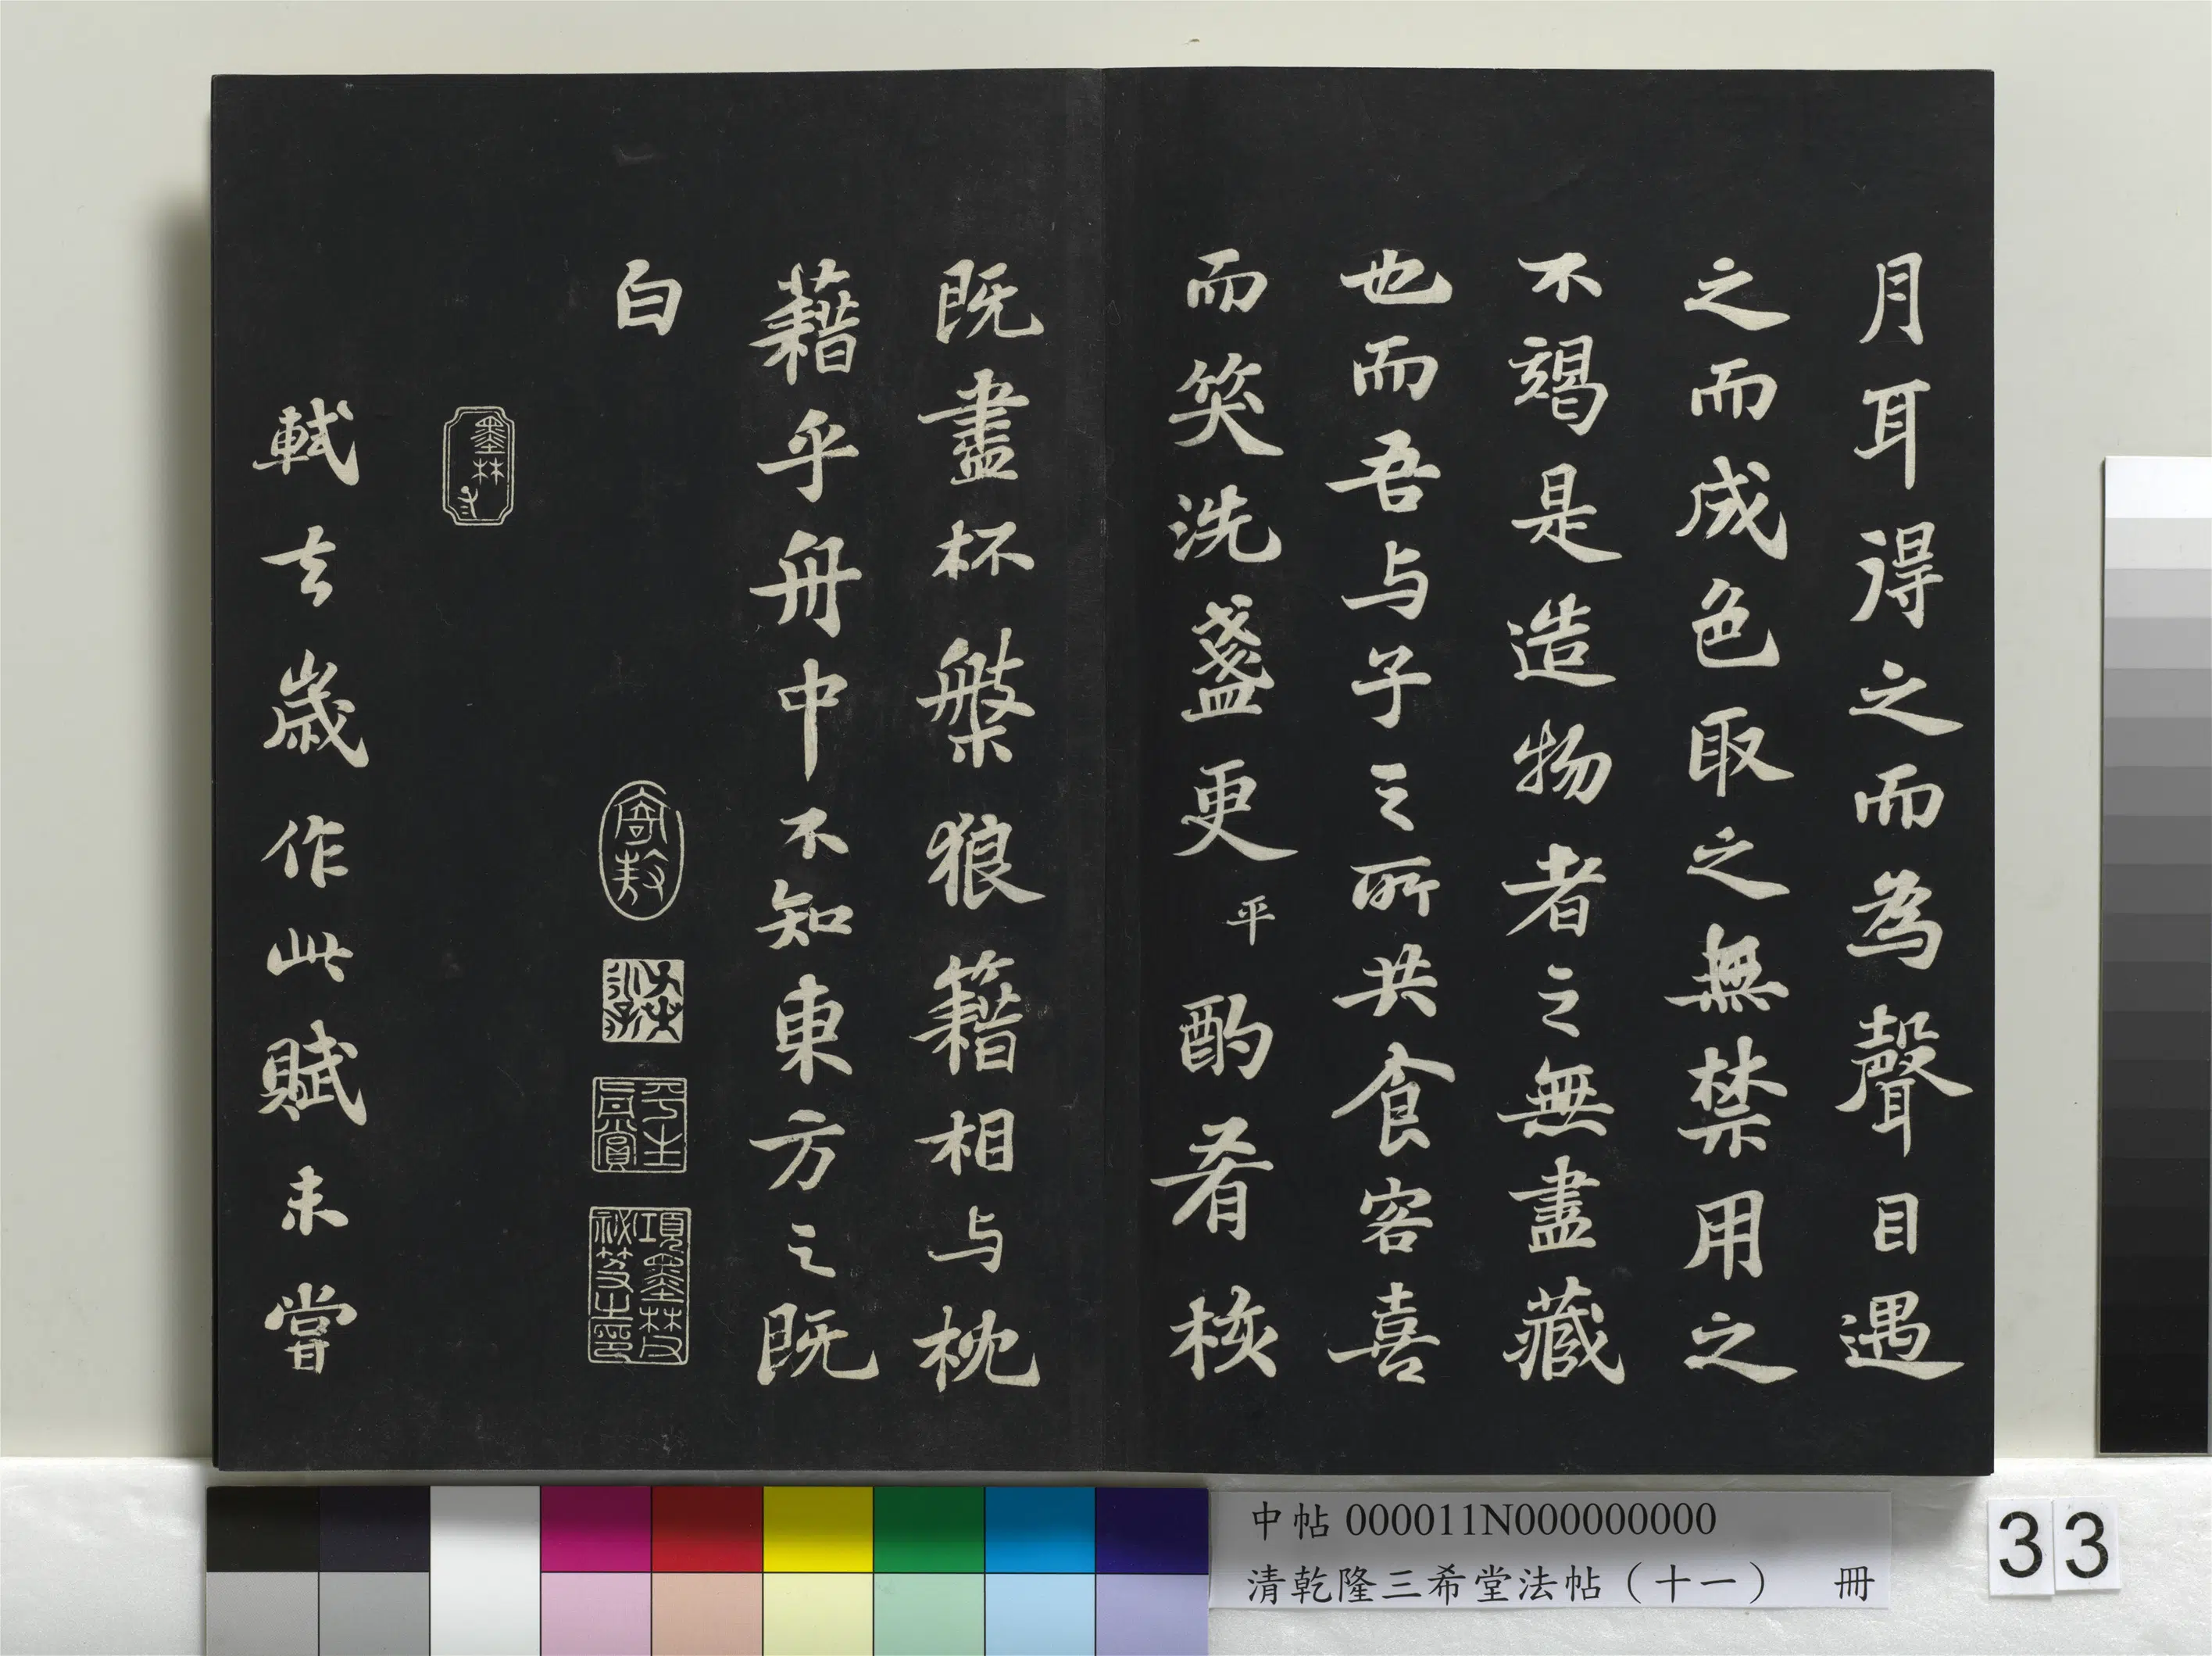 月耳得之而為聲目遇
之而成色取之無禁用之
不竭是造物者之無盡藏
也而吾与子之所共食客喜
而笑洗盞更平酌肴核
既盡杯槃狼籍相与枕
藉乎舟中不知東方之既
白
寄敖
平生真賞
項墨林父秘笈之印
墨林
軾去歲作此賦未嘗
中帖 000011N000000000
清乾隆三希堂法帖（十一） 冊
33